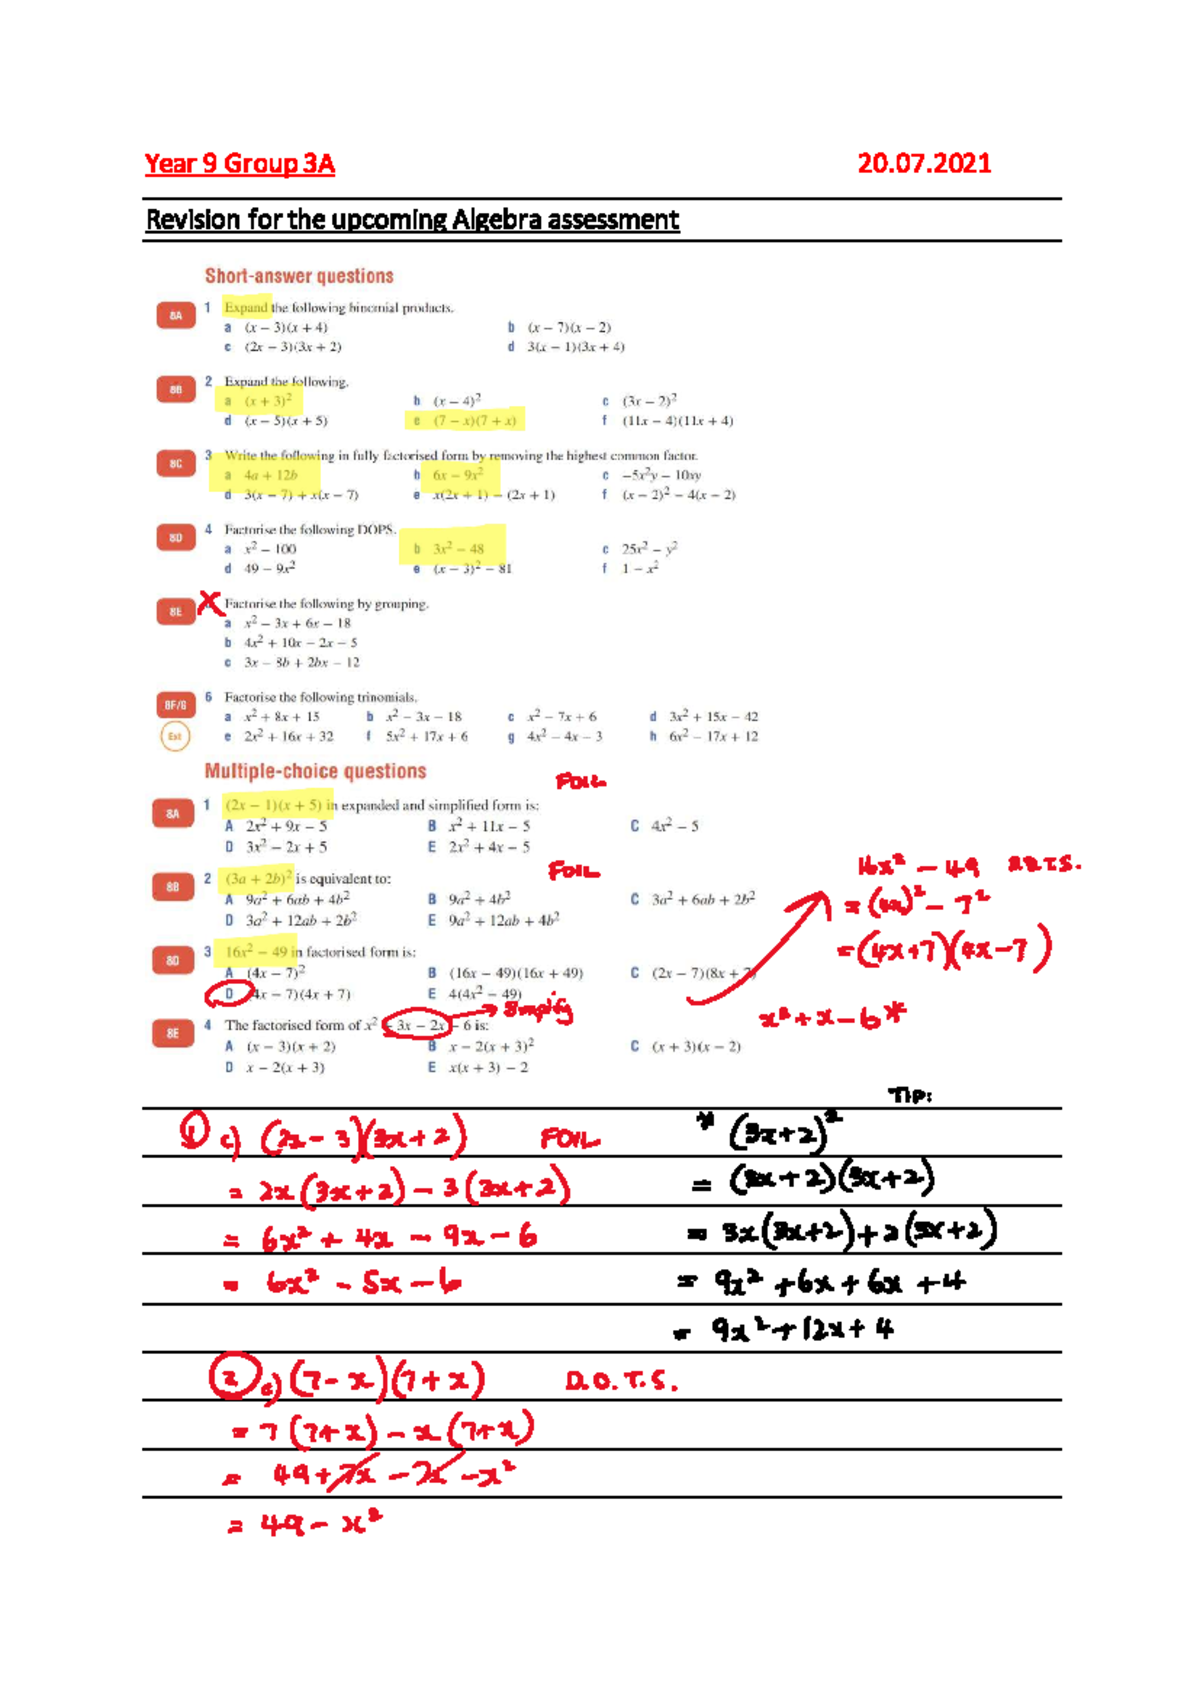 Year 9 Group 3A 20.07.2021
Revision for the upcoming Algebra assessment
Short-answer questions
8A 1 Expand the following binomial products.
a (x − 3)(x + 4) b (x − 7)(x − 2)
c (2x − 3)(3x + 2) d 3(x − 1)(3x + 4)
8B 2 Expand the following.
a (x + 3)² b (x − 4)² c (3x − 2)²
d (x − 5)(x + 5) e (7 − x)(7 + x) f (11x − 4)(11x + 4)
8C 3 Write the following in fully factorised form by removing the highest common factor.
a 4a + 12b b 6x − 9x² c −5x²y − 10xy
d 3(x − 7) + x(x − 7) e x(2x + 1) − (2x + 1) f (x − 2)² − 4(x − 2)
8D 4 Factorise the following DOPS.
a x² − 100 b 3x² − 48 c 25x² − y²
d 49 − 9x² e (x − 3)² − 81 f 1 − x²
8E X Factorise the following by grouping.
a x² − 3x + 6x − 18
b 4x² + 10x − 2x − 5
c 3x − 8b + 2bx − 12
8F/G 6 Factorise the following trinomials.
a x² + 8x + 15 b x² − 3x − 18 c x² − 7x + 6 d 3x² + 15x − 42
Ext e 2x² + 16x + 32 f 5x² + 17x + 6 g 4x² − 4x − 3 h 6x² − 17x + 12
Multiple-choice questions FOIL
8A 1 (2x − 1)(x + 5) in expanded and simplified form is:
A 2x² + 9x − 5 B x² + 11x − 5 C 4x² − 5
D 3x² − 2x + 5 E 2x² + 4x − 5
8B 2 (3a + 2b)² is equivalent to: FOIL
A 9a² + 6ab + 4b² B 9a² + 4b² C 3a² + 6ab + 2b²
D 3a² + 12ab + 2b² E 9a² + 12ab + 4b²
16x² − 49
= (4x)² − 7²
= (4x+7)(4x−7)
8D 3 16x² − 49 in factorised form is:
A (4x − 7)² B (16x − 49)(16x + 49) C (2x − 7)(8x + 7)
D (4x − 7)(4x + 7) E 4(4x² − 49)
Simplify
x² + x − 6 *
8E 4 The factorised form of x² + 3x − 2x − 6 is:
A (x − 3)(x + 2) B x − 2(x + 3)² C (x + 3)(x − 2)
D x − 2(x + 3) E x(x + 3) − 2
TIP:
① c) (2x − 3)(3x + 2) FOIL * (3x+2)²
= 2x(3x+2) − 3(3x+2) = (3x+2)(3x+2)
= 6x² + 4x − 9x − 6 = 3x(3x+2)+2(3x+2)
= 6x² − 5x − 6 = 9x² + 6x + 6x + 4
= 9x² + 12x + 4
② e) (7 − x)(7 + x) D.O.T.S.
= 7(7+x) − x(7+x)
= 49 + 7x − 7x − x²
= 49 − x²